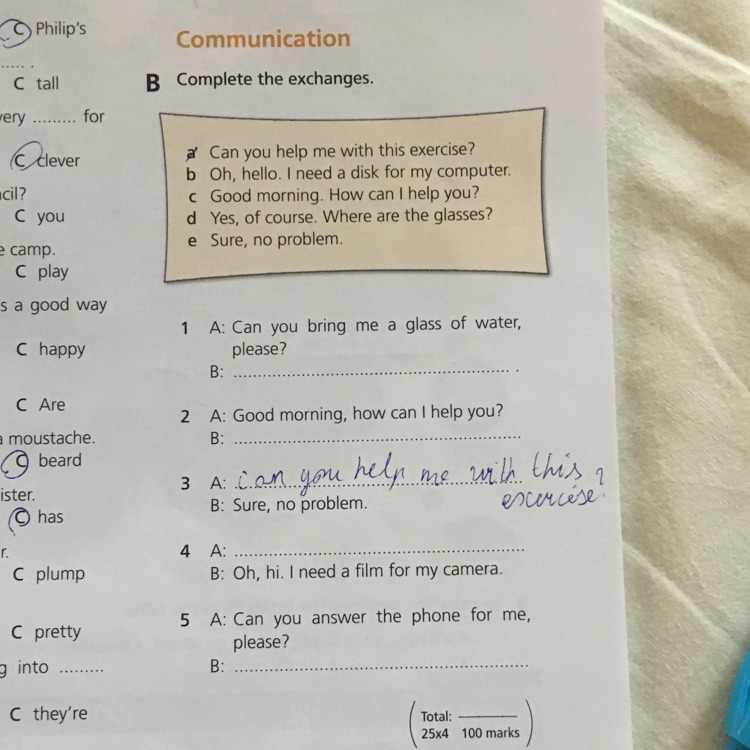 C Philip's
..... .
C tall
very ......... for
C clever
cil?
C you
e camp.
C play
s a good way
C happy
C Are
a moustache.
C beard
ister.
C has
r.
C plump
C pretty
g into .........
C they're
Communication
B Complete the exchanges.
a Can you help me with this exercise?
b Oh, hello. I need a disk for my computer.
c Good morning. How can I help you?
d Yes, of course. Where are the glasses?
e Sure, no problem.
1 A: Can you bring me a glass of water,
please?
B: .................................................... .
2 A: Good morning, how can I help you?
B: ....................................................
3 A: can you help me with this ?
excercise.
B: Sure, no problem.
4 A: ....................................................
B: Oh, hi. I need a film for my camera.
5 A: Can you answer the phone for me,
please?
B: ....................................................
Total: ________
25x4 100 marks